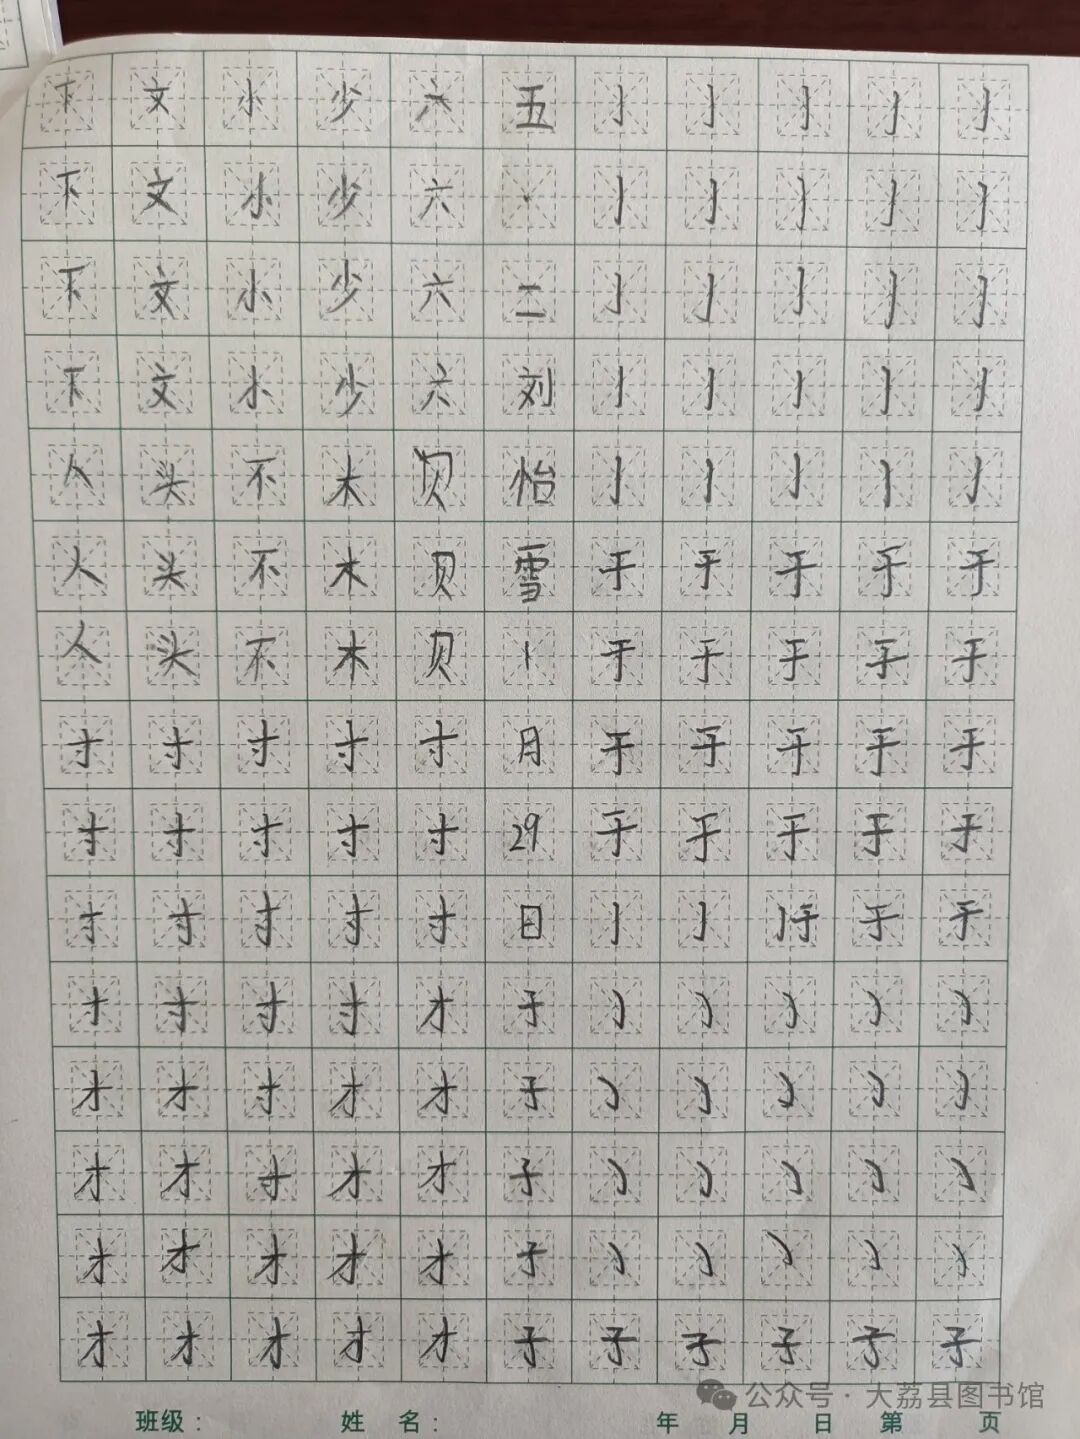 下文小少六五亅亅亅亅亅
下文小少六·亅亅亅亅亅
下文小少六二亅亅亅亅亅
下文小少六刘亅亅亅亅亅
人头不木贝怡亅亅亅亅亅
人头不木贝雪于于于于于
人头不木贝1于于于于于
寸寸寸寸寸月于于于于于
寸寸寸寸寸29于于于于于
寸寸寸寸寸日亅亅亅于于于
寸寸寸寸才子㇁㇁㇁㇁㇁
才才寸才才子㇁㇁㇁㇁㇁
才才寸才才子㇁㇁㇁㇁㇁
才才才才才子㇁㇁㇁㇁㇁
才才才才才子子子子子子
公众号·大荔县图书馆
班级： 姓 名： 年 月 日 第 页